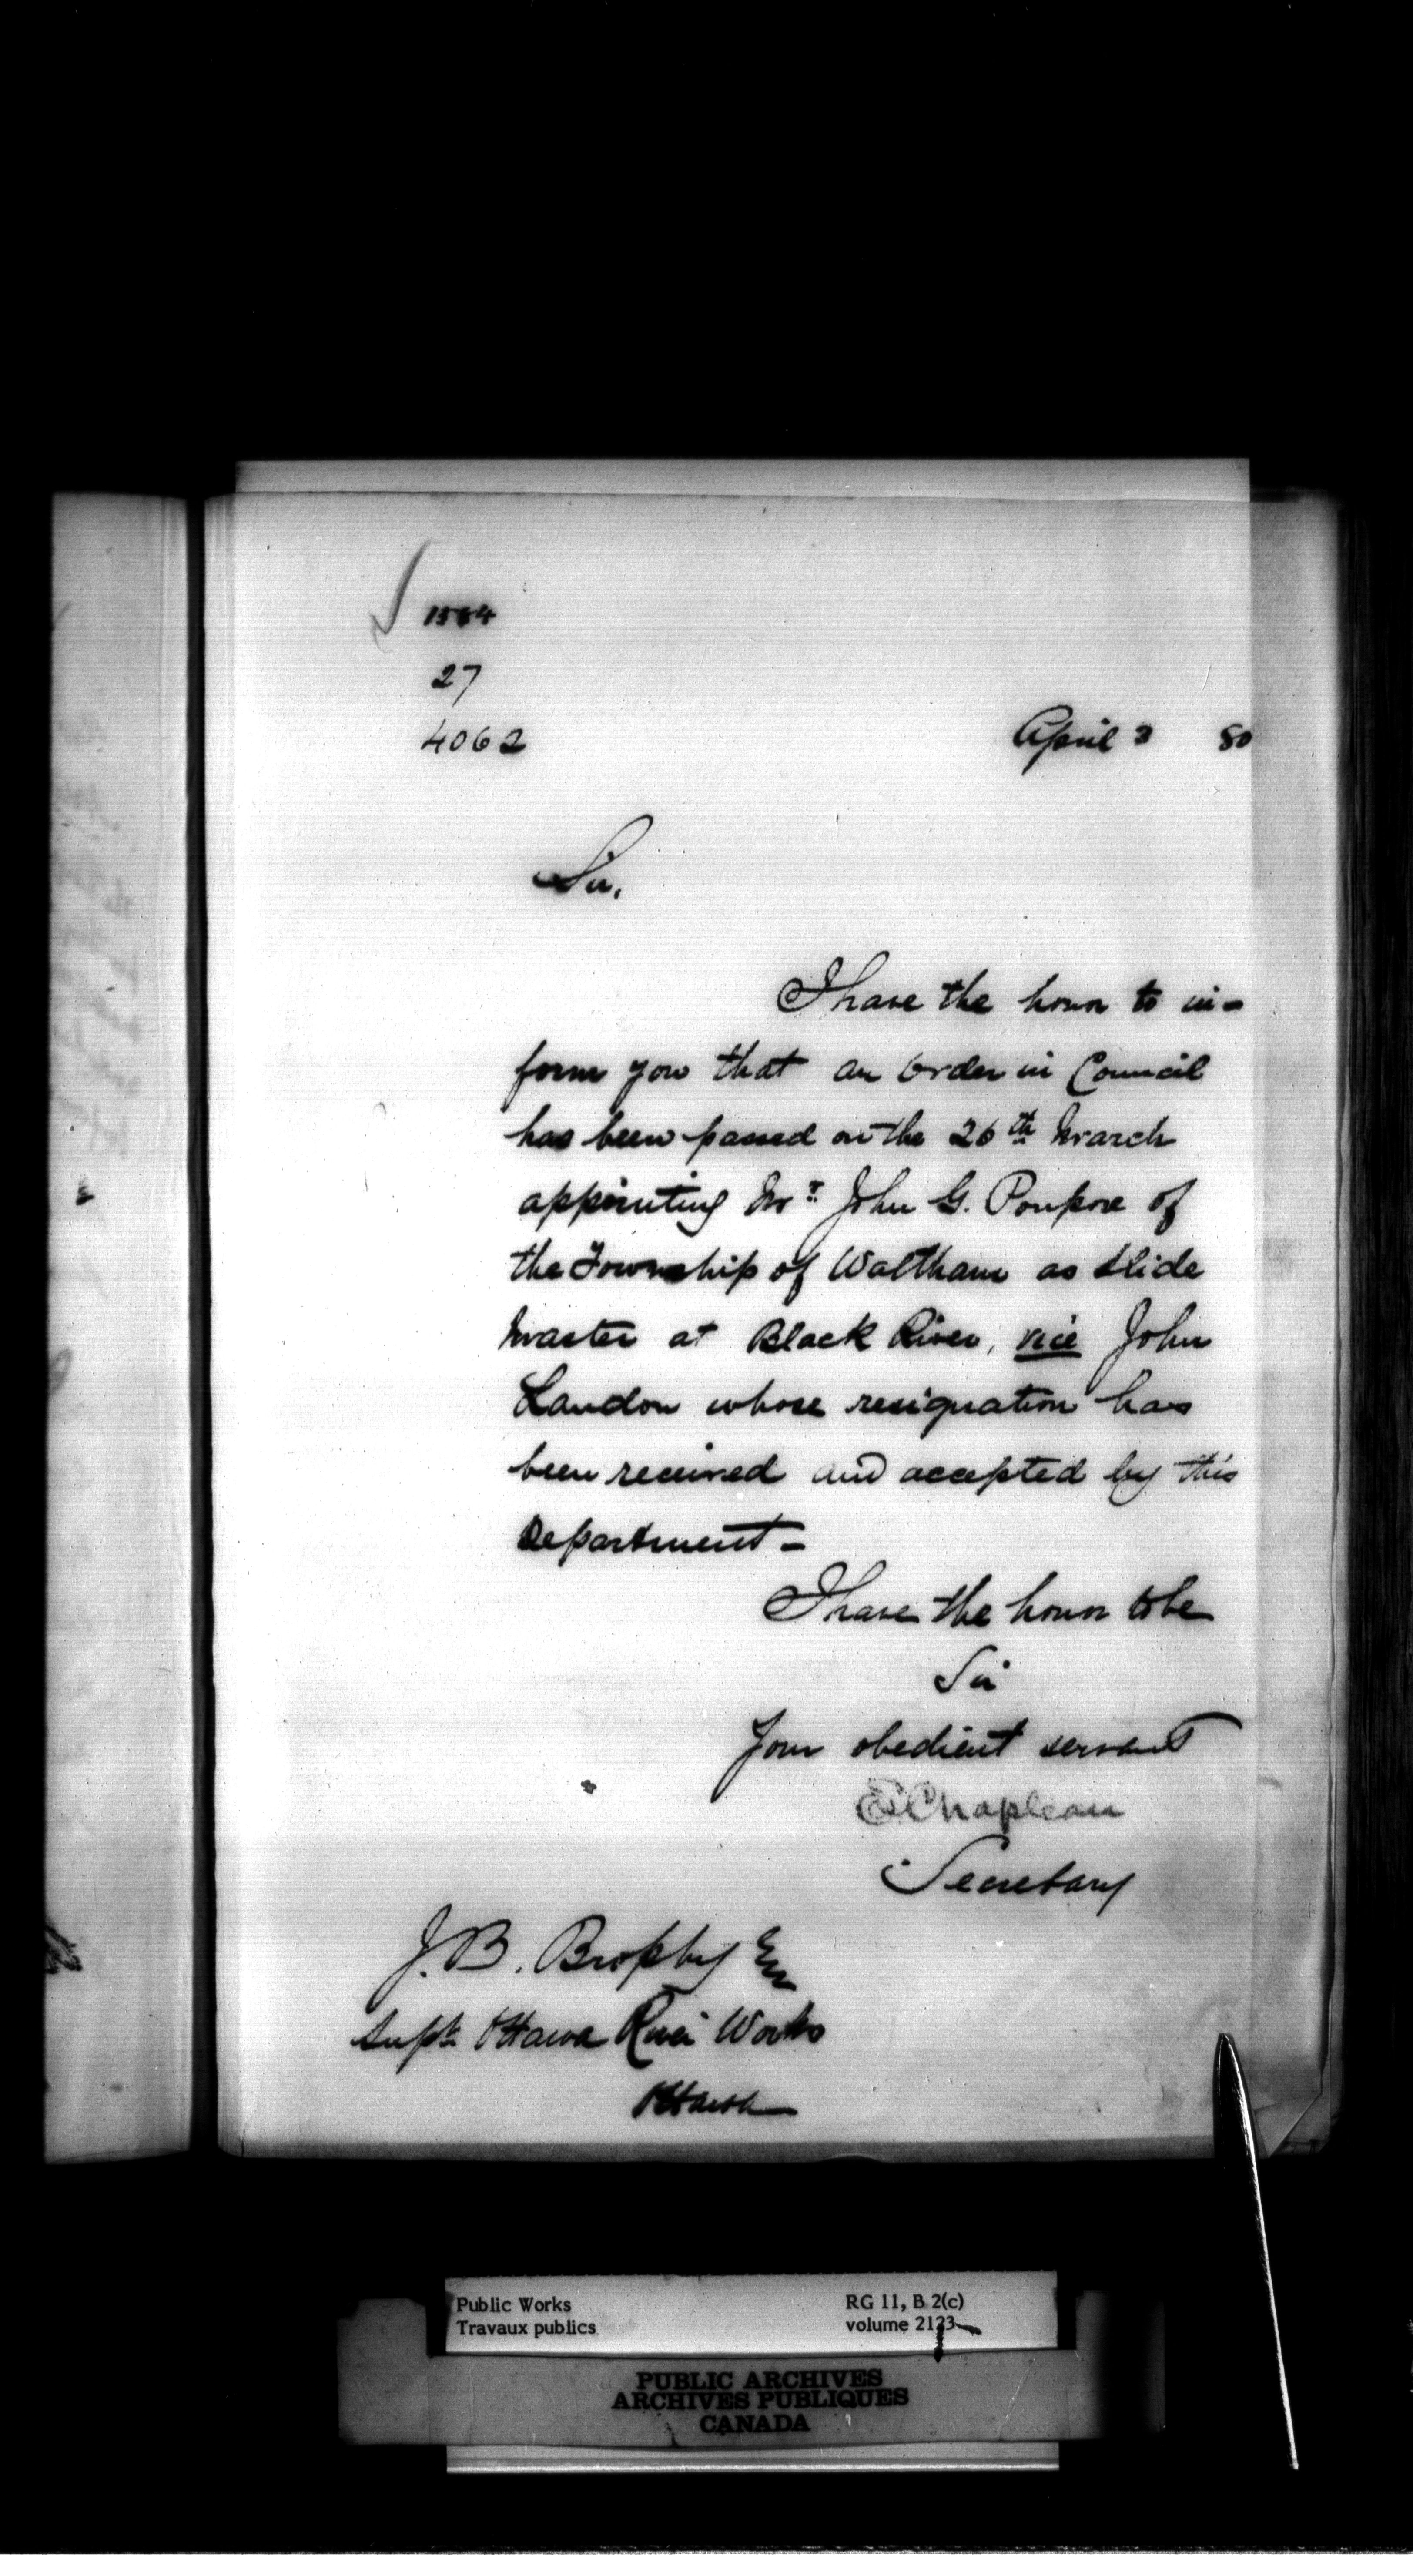 1564
27
4062
April 3 80
Sir,
I have the honor to in-
form you that an Order in Council
has been passed on the 26th March
appointing Mr. John G. Poupore of
the Township of Waltham as Slide
Master at Black River, vice John
Landon whose resignation has
been received and accepted by this
Department -
I have the honor to be
Sir
Your obedient servant
Chapleau
Secretary
J. B. Brophy Esq
Supt. Ottawa River Works
Ottawa
Public Works
Travaux publics
RG 11, B 2(c)
volume 2123
PUBLIC ARCHIVES
ARCHIVES PUBLIQUES
CANADA